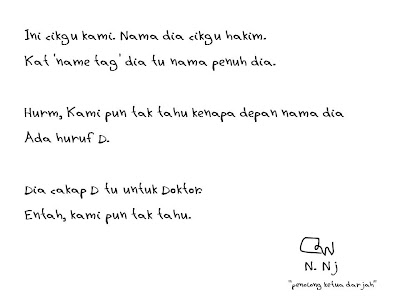 Ini cikgu kami. Nama dia cikgu hakim.
Kat 'name tag' dia tu nama penuh dia.
Hurm, Kami pun tak tahu kenapa depan nama dia
Ada huruf D.
Dia cakap D tu untuk Doktor.
Entah, kami pun tak tahu.
N. Nj
"penolong ketua darjah"